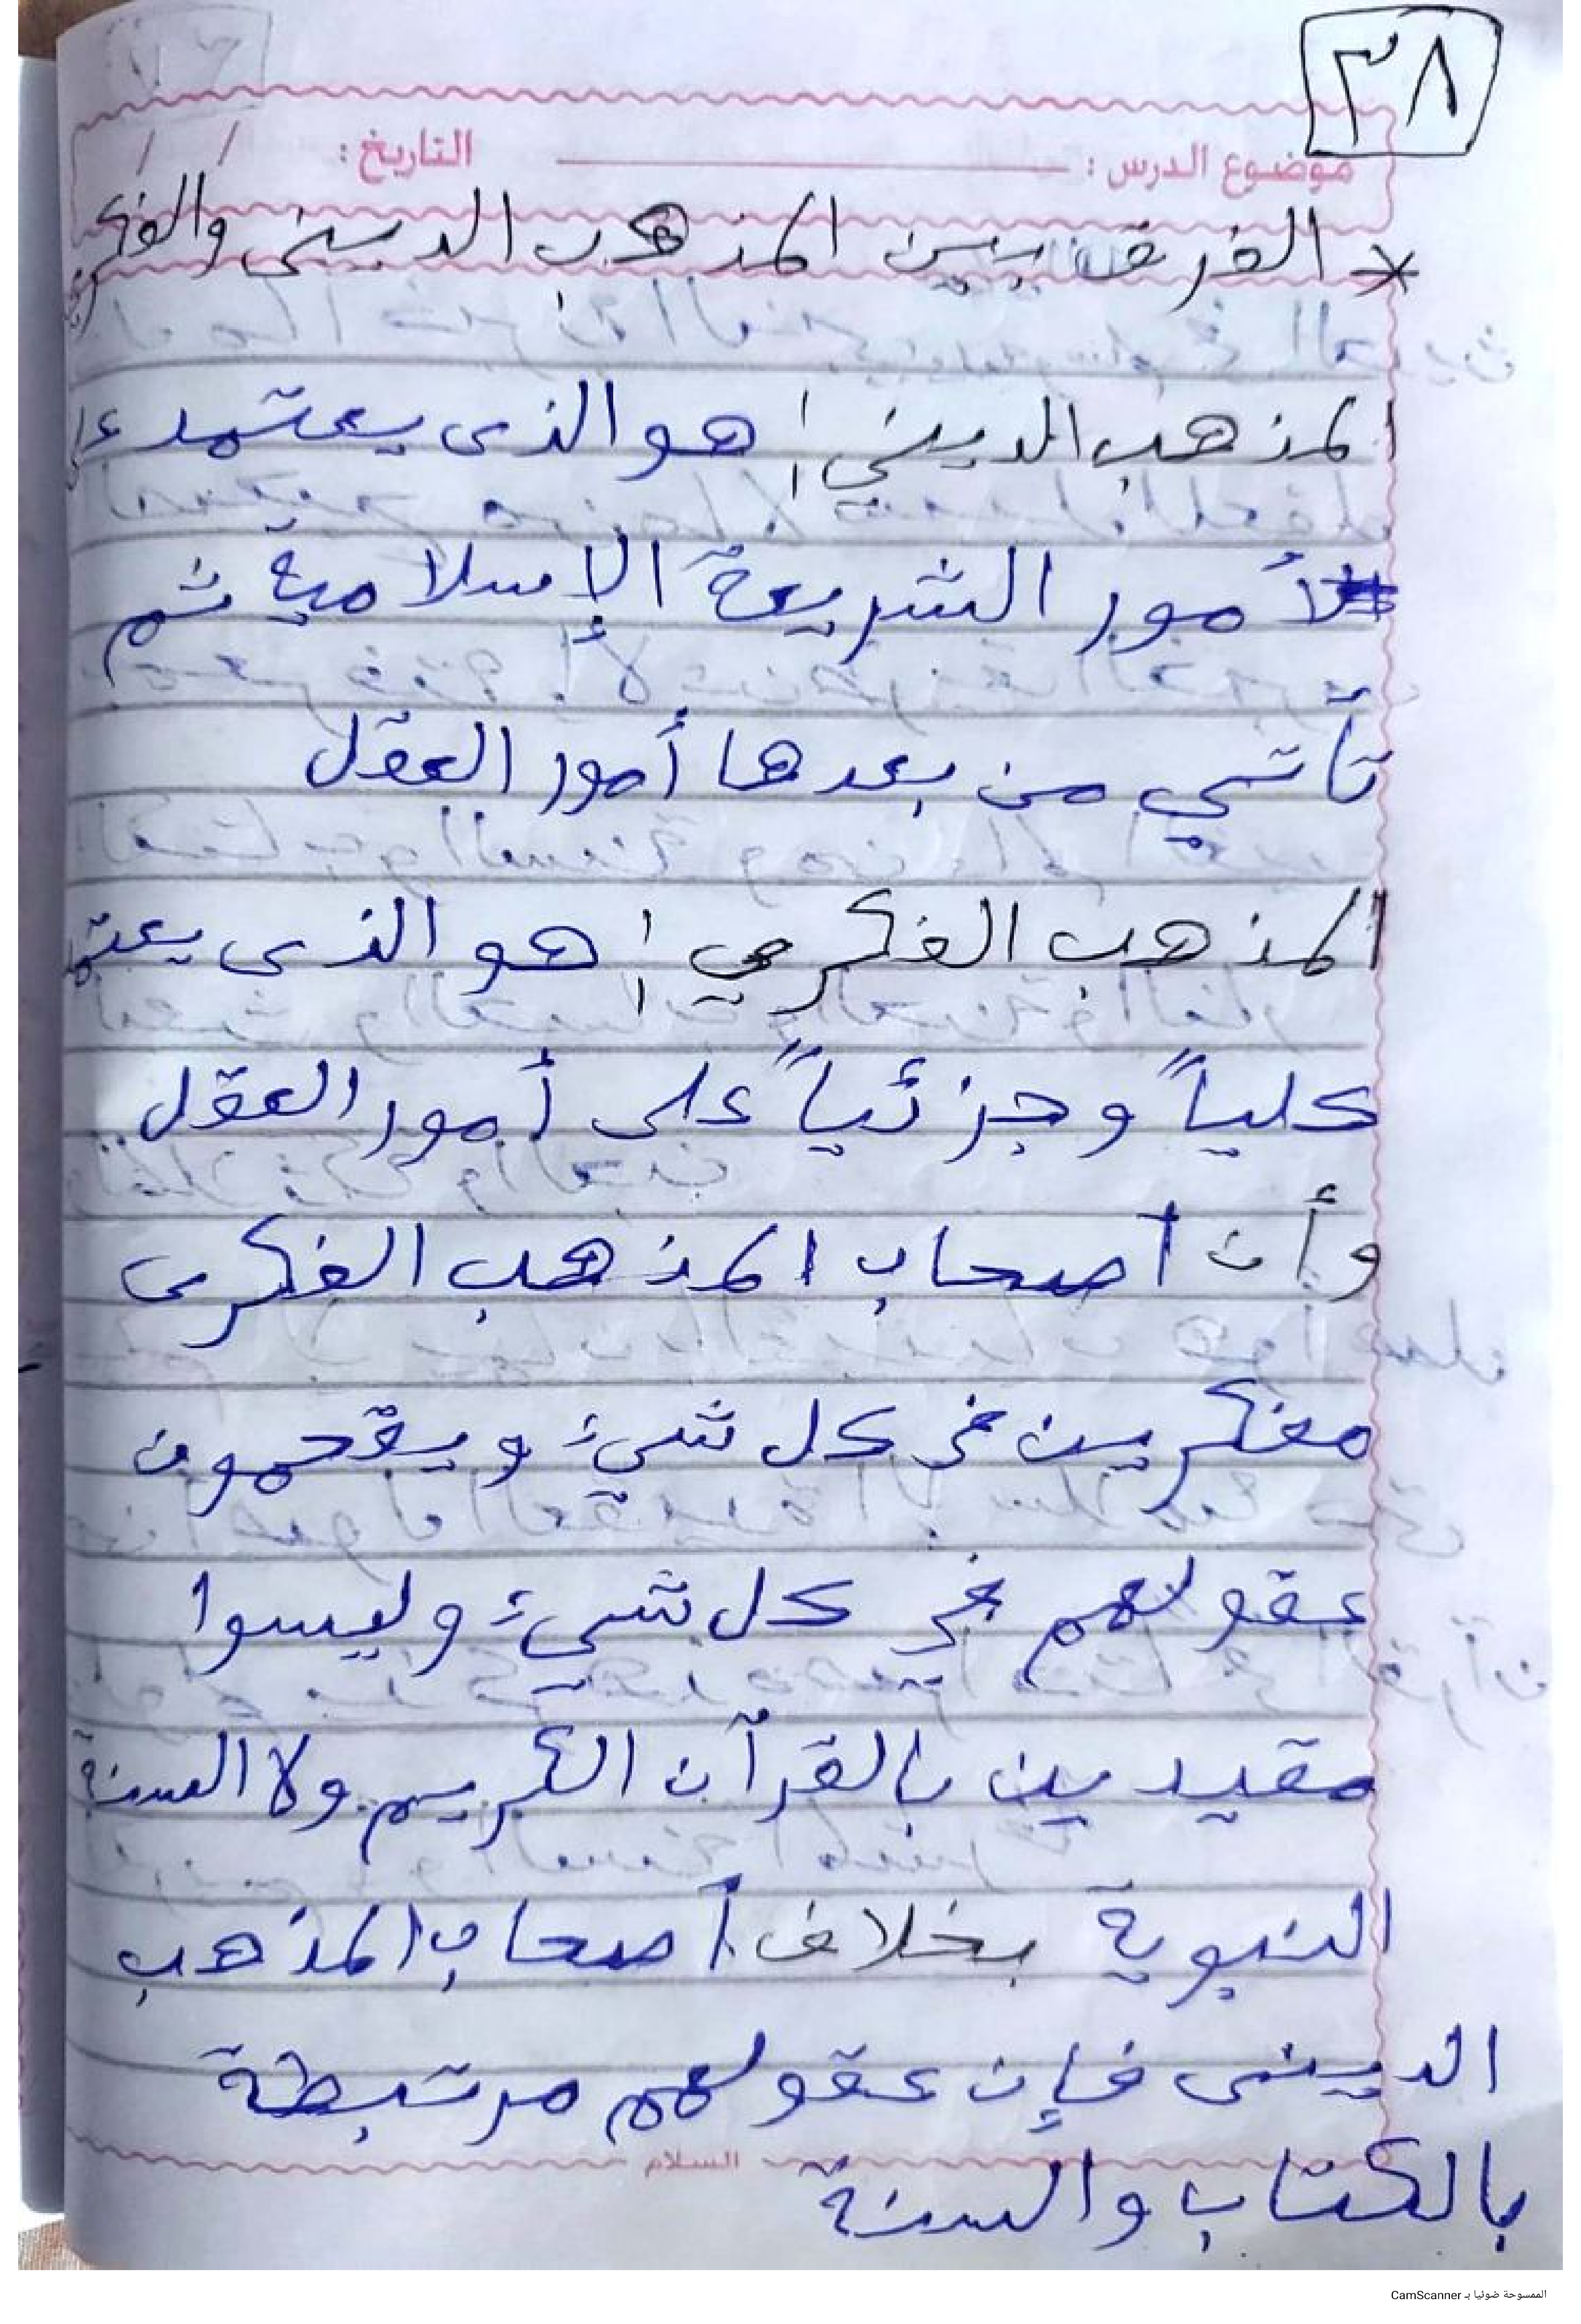 ٣٨
موضوع الدرس : التاريخ : / /
* الفرق بين المذهب الديني والفكري
المذهب الديني : هو الذى يعتمد على
أمور الشريعة الإسلامية ثم
تأتي من بعدها أمور العقل
المذهب الفكري : هو الذى يعتمد
كلياً وجزئياً على أمور العقل
وأن أصحاب المذهب الفكرى
مفكرين في كل شيء ويقحمون
عقولهم في كل شيء وليسوا
مقيدين بالقرآن الكريم ولا السنة
النبوية بخلاف أصحاب المذهب
الدينى فإن عقولهم مرتبطة
السلام
بالكتاب والسنة
الممسوحة ضوئيا بـ CamScanner